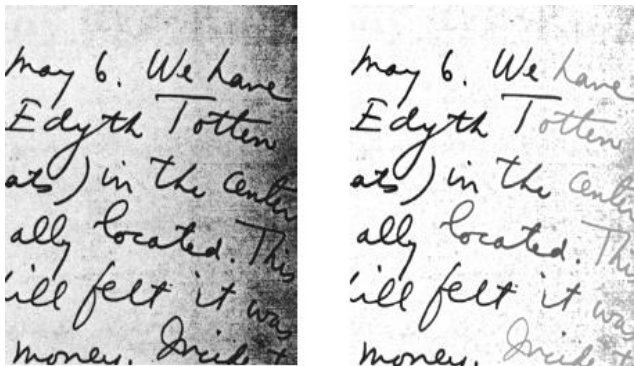 May 6. We have
Edyth Totten
ats) in the center
ally located. This
ill felt it was
money.
May 6. We have
Edyth Totten
ats) in the center
ally located. This
ill felt it was
money.